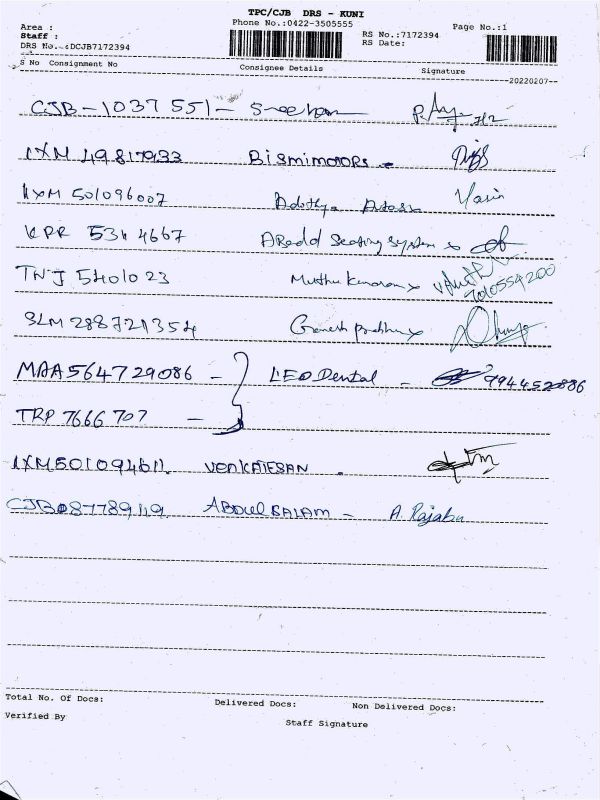 TPC/CJB DRS - KUNI
Phone No.:0422-3505555
Page No.:1
Area :
Staff :
RS No.:7172394
DRS No. DCJB7172394
RS Date:
S No Consignment No Consignee Details Signature
20220207
CJB-1037551-
MAA564729086 - LEO Dental -
TRP 7666 707 -
IXM501094611. VENKATESAN .
CJB087789119 ABDUL SALAM - A. Rajabu
IXM 49817933 BISMIMOTORS -
IXM 501096007 Adithya Yasin
KPR 5314667 Seating System x
TNJ 5401023 7010554200
SLM 288721354 Ganesh Prabhu x
Total No. Of Docs: Delivered Docs: Non Delivered Docs:
Verified By
Staff Signature